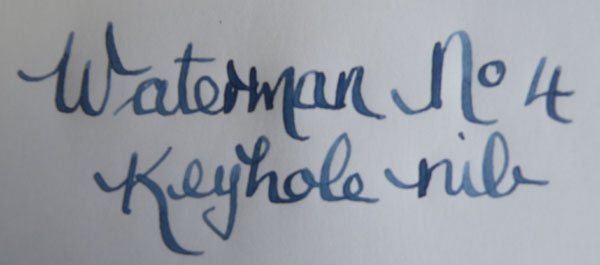 Waterman No 4
Keyhole nib